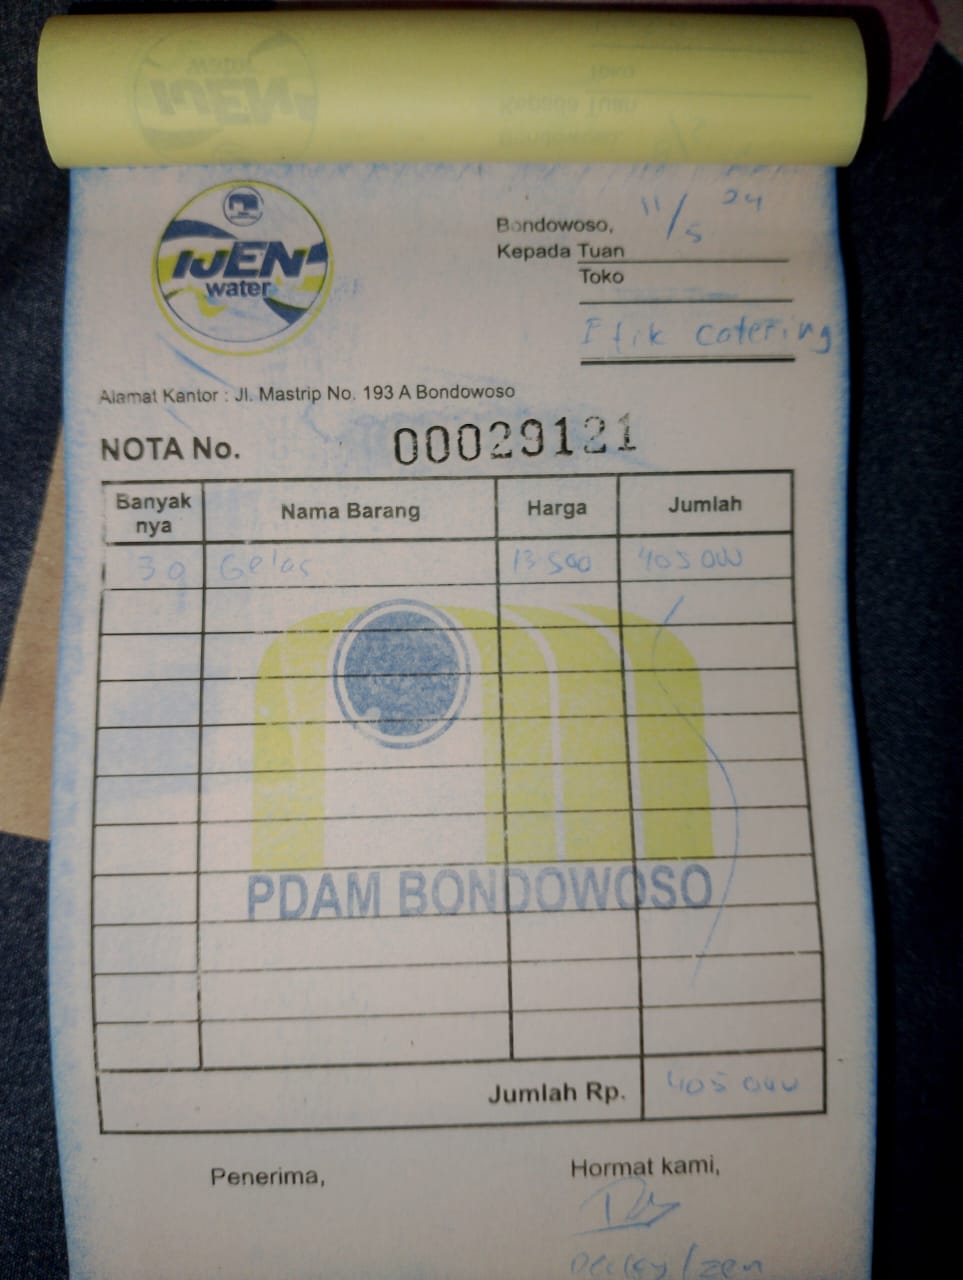 IJEN
water
Bondowoso, 11/5 24
Kepada Tuan
Toko
Ifik catering
Alamat Kantor : Jl. Mastrip No. 193 A Bondowoso
NOTA No. 00029121
Banyak nya Nama Barang Harga Jumlah
30 Gelas 13 500 405 000
PDAM BONDOWOSO
Jumlah Rp. 405 000
Penerima, Hormat kami,